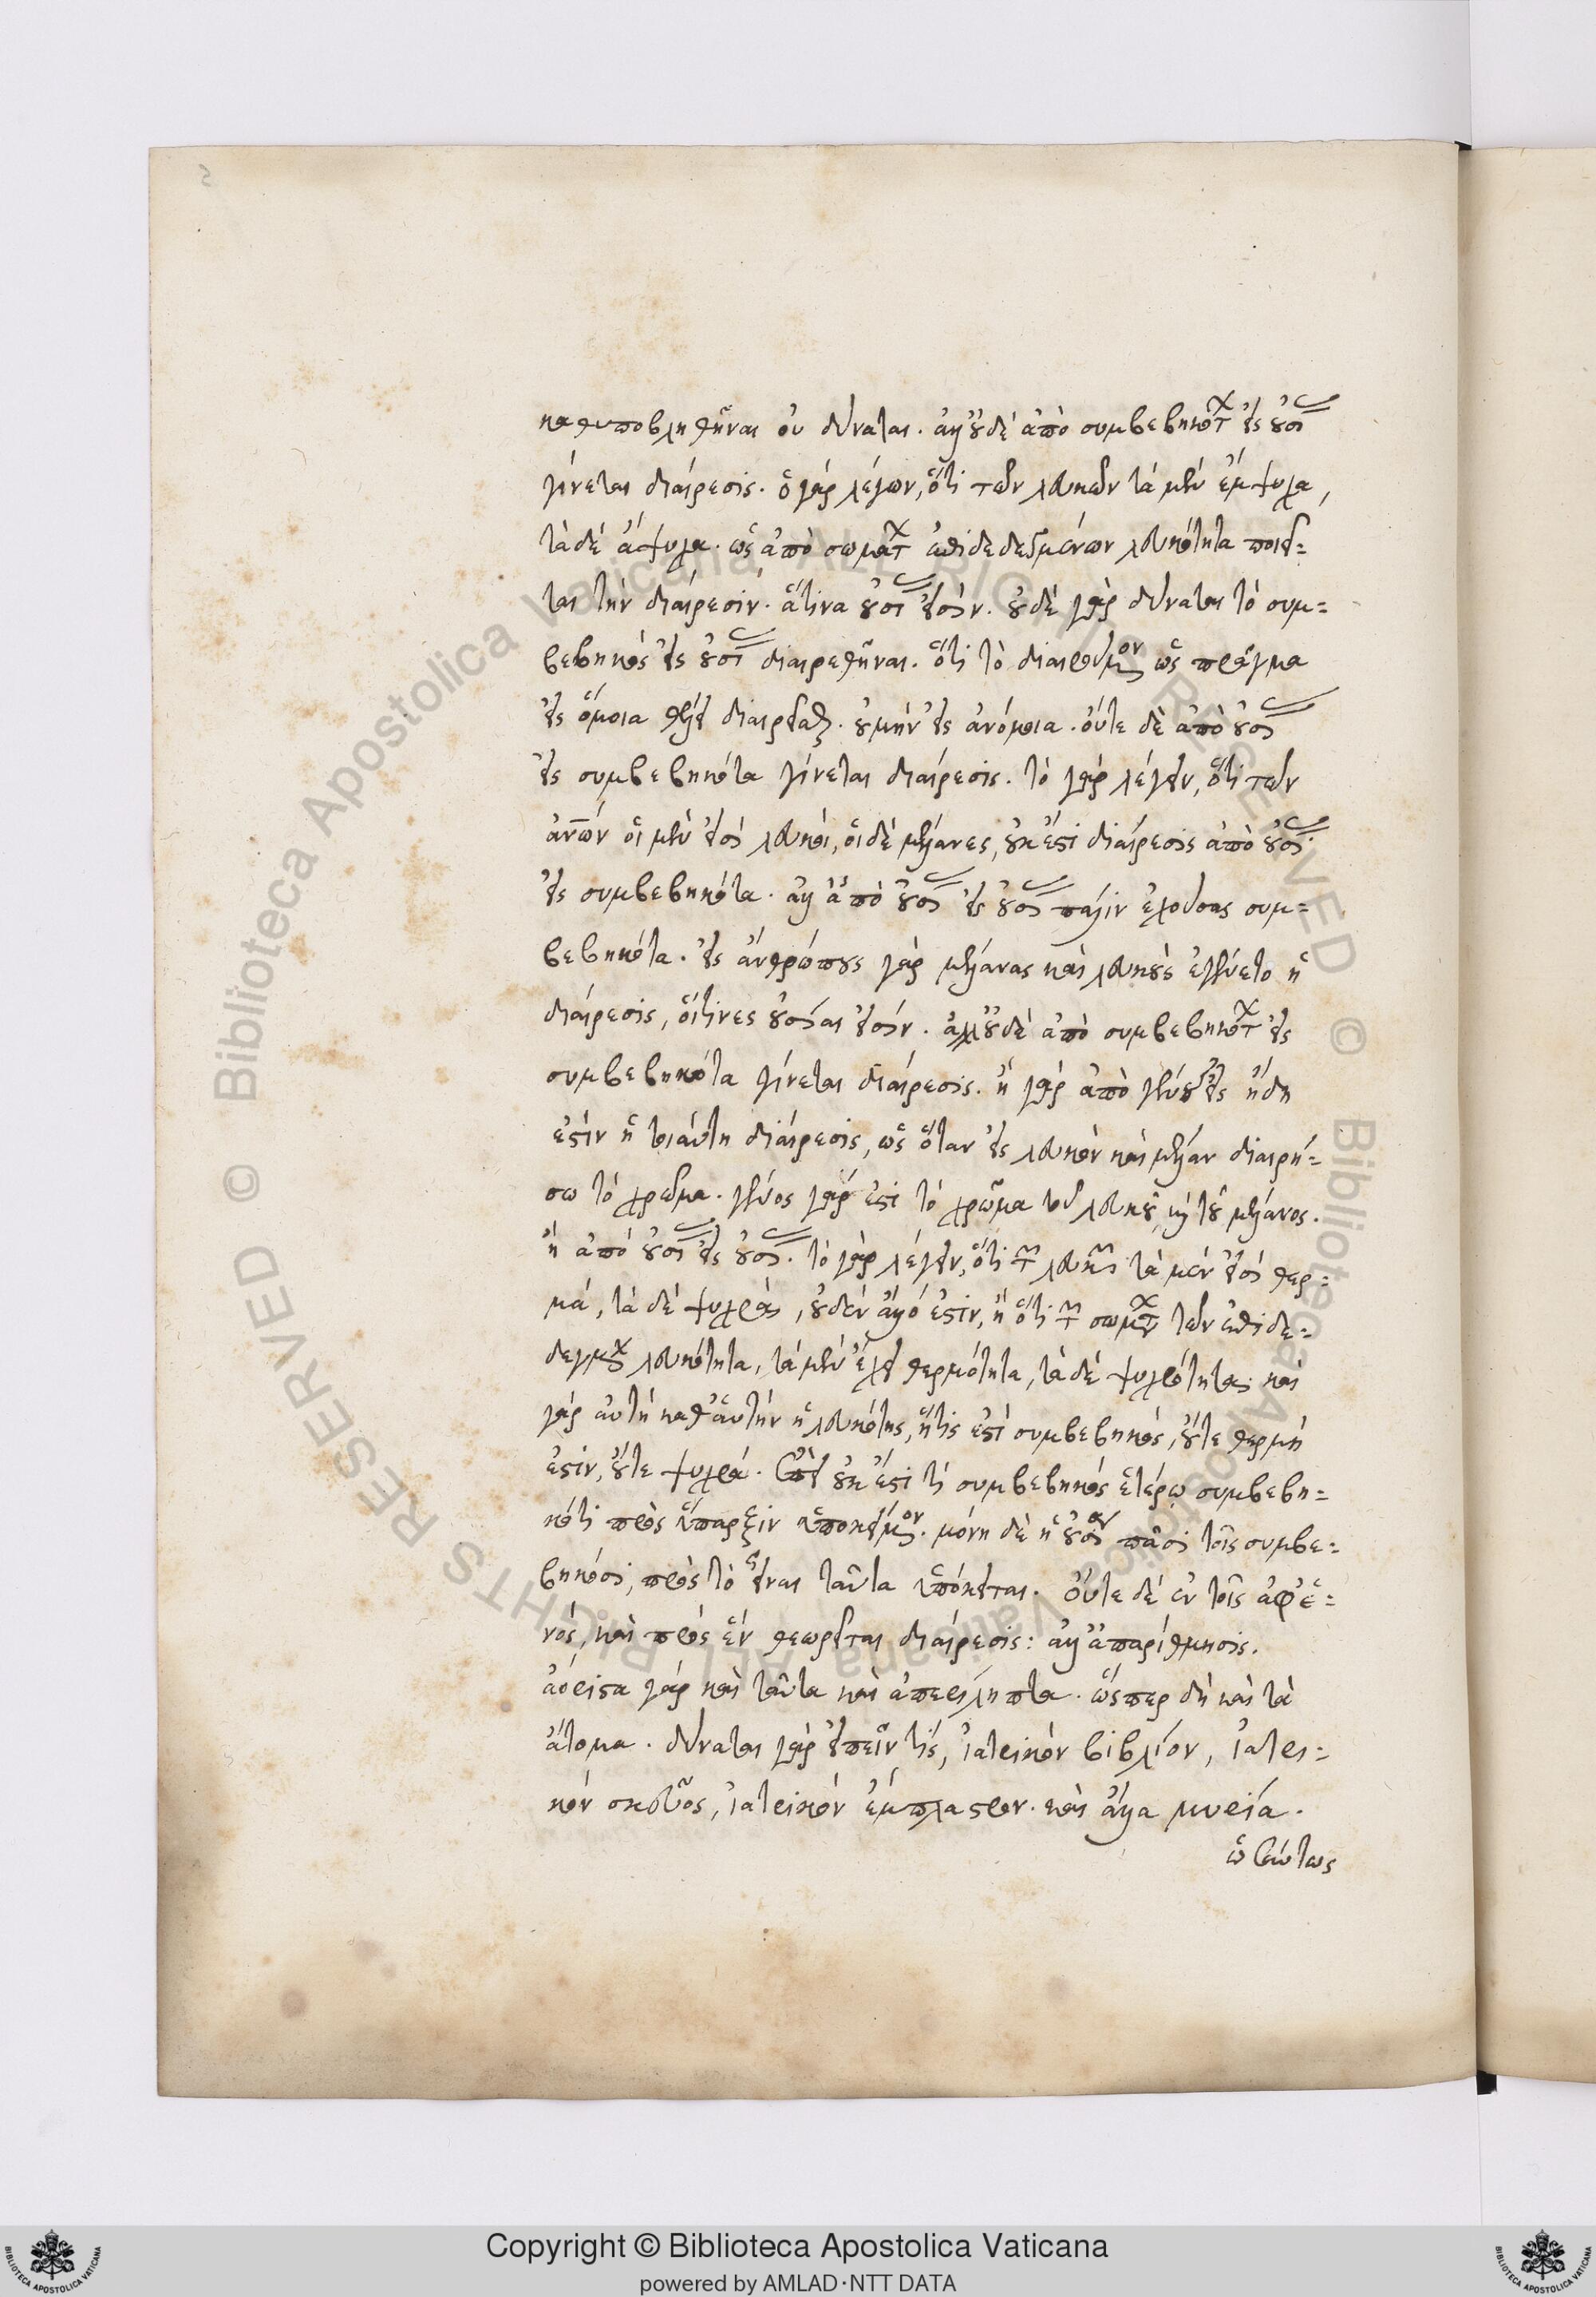 καθυποβληθῆναι οὐ δύναται. ἀλλ' οὐδὲ ἀπὸ συμβεβηκότων εἰς οὐσίας
γίνεται διαίρεσις. ὁ γὰρ λέγων, ὅτι τῶν λευκῶν τὰ μὲν ἔμψυχα,
τὰ δὲ ἄψυχα. ὡς ἀπὸ σωμάτων ἐπιδεδεγμένων λευκότητα ποιεῖ=
ται τὴν διαίρεσιν. ἅτινα οὐσίαι εἰσίν. οὐδὲ γὰρ δύναται τὸ συμ=
βεβηκὸς εἰς οὐσίας διαιρεθῆναι. ὅτι τὸ διαιρούμενον ὡς πρᾶγμα
εἰς ὅμοια θέλει διαιρεῖσθαι. οὐ μὴν εἰς ἀνόμοια. οὔτε δὲ ἀπὸ οὐσίας
εἰς συμβεβηκότα γίνεται διαίρεσις. τὸ γὰρ λέγειν, ὅτι τῶν
ἀνων οἱ μὲν εἰσὶ λευκοὶ, οἱ δὲ μέλανες, οὐκ ἔστι διαίρεσις ἀπὸ οὐσίας
εἰς συμβεβηκότα. ἀλλ' ἀπὸ οὐσίας εἰς οὐσίας πάλιν ἐχούσας συμ=
βεβηκότα. εἰς ἀνθρώπους γὰρ μέλανας καὶ λευκοὺς ἐγένετο ἡ
διαίρεσις, οἵτινες οὐσίαι εἰσίν. ἀλλ' οὐδὲ ἀπὸ συμβεβηκότων εἰς
συμβεβηκότα γίνεται διαίρεσις. ἢ γὰρ ἀπὸ γένους εἰς εἴδη
ἐστὶν ἡ τοιαύτη διαίρεσις, ὡς ὅταν εἰς λευκὸν καὶ μέλαν διαιρή=
σω τὸ χρῶμα. γένος γάρ ἐστι τὸ χρῶμα τοῦ λευκοῦ καὶ τοῦ μέλανος.
ἢ ἀπὸ οὐσίας εἰς οὐσίας. τὸ γὰρ λέγειν, ὅτι τῶν λευκῶν τὰ μὲν εἰσὶ θερ=
μά, τὰ δὲ ψυχρά, οὐδὲν ἄλλό ἐστιν, ἢ ὅτι τῶν σωμάτων τῶν ἐπιδε=
δεγμένων λευκότητα, τὰ μὲν ἔχει θερμότητα, τὰ δὲ ψυχρότητα. καὶ
γὰρ αὐτὴ καθ' αὑτὴν ἡ λευκότης, ἥτις ἐστὶ συμβεβηκὸς, οὔτε θερμή
ἐστιν, οὔτε ψυχρά. ἐπεὶ οὐκ ἔστι τὶ συμβεβηκὸς ἑτέρῳ συμβεβη=
κότι πρὸς ὕπαρξιν ὑποκείμενον. μόνη δὲ ἡ οὐσία πᾶσι τοῖς συμβε=
βηκόσι, πρὸς τὸ εἶναι ταῦτα ὑπόκειται. Οὔτε δὲ ἐν τοῖς ἀφ' ἑ=
νὸς, καὶ πρὸς ἓν θεωρεῖται διαίρεσις: ἀλλ' ἀπαρίθμησις.
ἀόριστα γὰρ καὶ ταῦτα καὶ ἀπερίληπτα. ὥσπερ δὴ καὶ τὰ
ἄτομα. δύναται γὰρ εἰπεῖν τίς, ἰατρικὸν βιβλίον, ἰατρι=
κὸν σκεῦος, ἰατρικὸν ἔμπλαστρον. καὶ ἄλλα μυρία.
ὡσαύτως
Copyright © Biblioteca Apostolica Vaticana
powered by AMLAD·NTT DATA